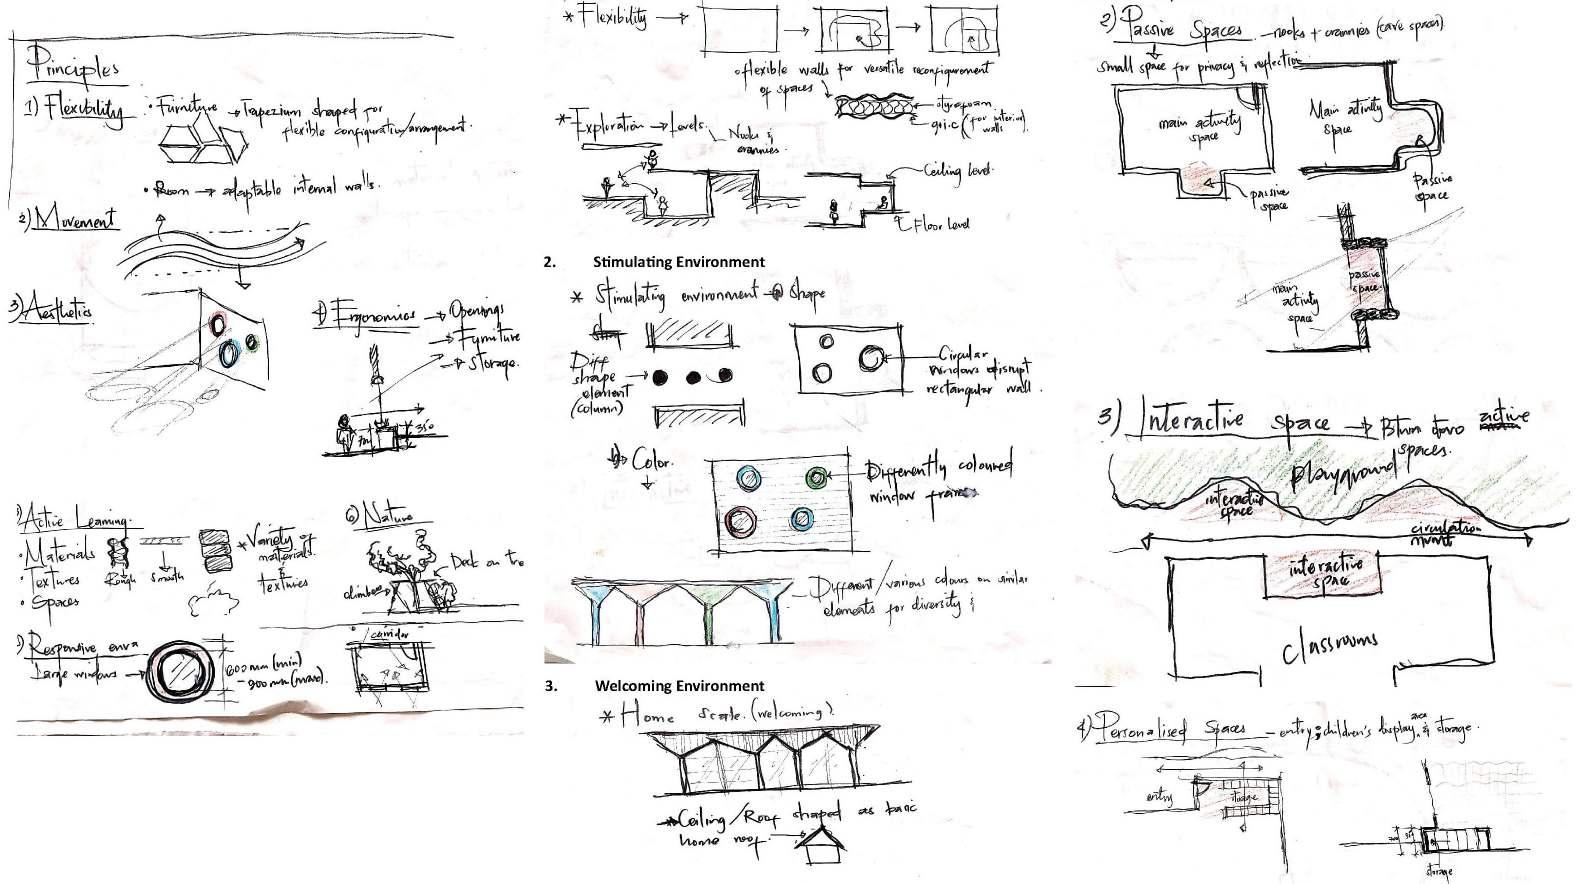 Principles
1) Flexibility
• Furniture → Trapezium shaped for
flexible configuration/arrangement.
• Room → adaptable internal walls.
2) Movement
3) Aesthetics
4) Ergonomics → Openings
→ Furniture
→ Storage.
350
Active Learning.
• Materials
• Textures
• Spaces
Rough
Smooth
* Variety of
materials
&
textures
6) Nature
Deck on tree
climbers
Responsive env
Large windows
600mm (min)
- 900mm (max).
corridor
* Flexibility →
• flexible walls for versatile reconfigurement
of spaces
styrofoam
g.r.c (for interior
walls)
* Exploration → Levels.
Nooks &
crannies.
Ceiling level
Floor level
2. Stimulating Environment
* Stimulating environment → a) Shape
Diff
shape
element
(column)
Circular
windows disrupt
rectangular wall.
b) Color.
Differently coloured
window frames
Different/various colours on similar
elements for diversity &
3. Welcoming Environment
* Home Scale. (welcoming)
* Ceiling/Roof shaped as basic
home roof.
2) Passive Spaces - nooks + crannies (cave spaces)
Small space for privacy & reflection
main activity
space
passive
space
Main activity
Space
Passive
space
passive
space
main
activity
space
3) Interactive Space → Btwn two active
spaces.
playground
interactive
space
circulation
interactive
space
classrooms
4) Personalised Spaces - entry; children's display area & storage.
entry
storage
storage